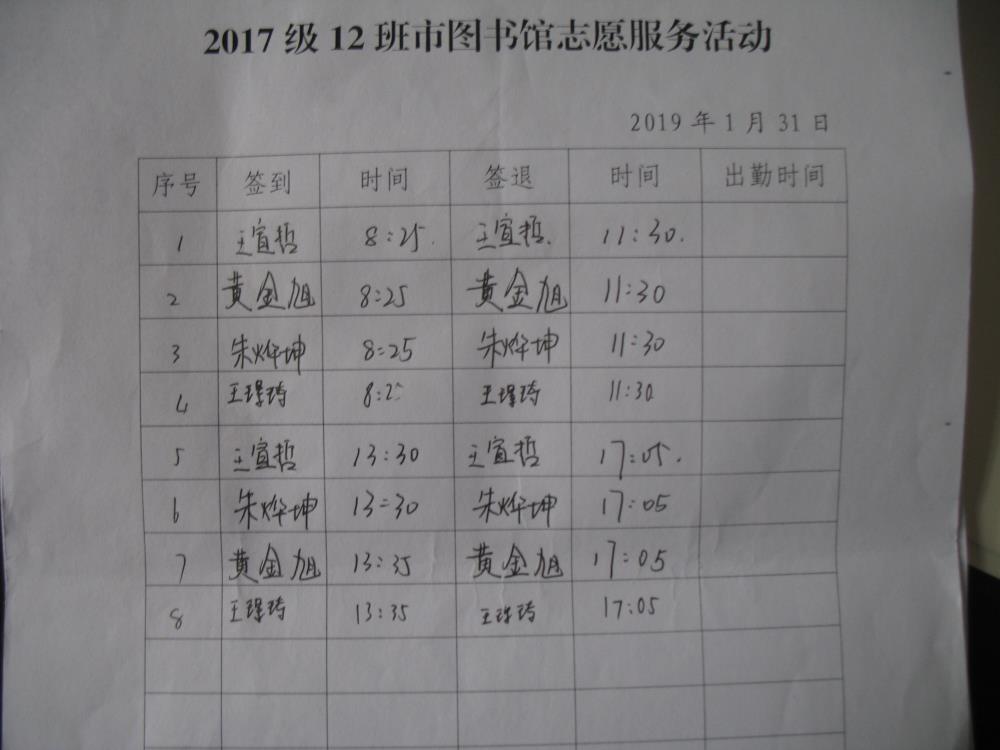 2017 级 12 班市图书馆志愿服务活动
2019 年 1 月 31 日
序号 签到 时间 签退 时间 出勤时间
1 王宣哲 8:25. 王宣哲. 11:30.
2 黄金旭 8:25 黄金旭 11:30
3 朱烨坤 8:25 朱烨坤 11:30
4 8:25 11:30
5 王宣哲 13:30 王宣哲 17:05.
6 朱烨坤 13:30 朱烨坤 17:05
7 黄金旭 13:35 黄金旭 17:05
8 13:35 17:05